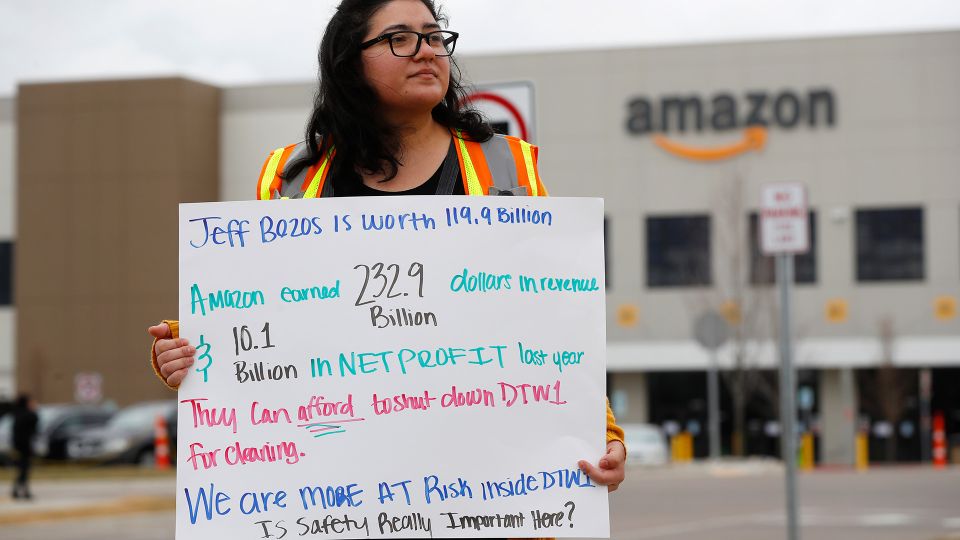 amazon
Jeff Bezos Is worth 119.9 Billion
Amazon earned 232.9 Billion dollars in revenue
& 10.1 Billion In NET PROFIT last year
They can afford to shut down DTW1
for cleaning.
We are MORE AT Risk inside DTW1
Is Safety Really Important Here?